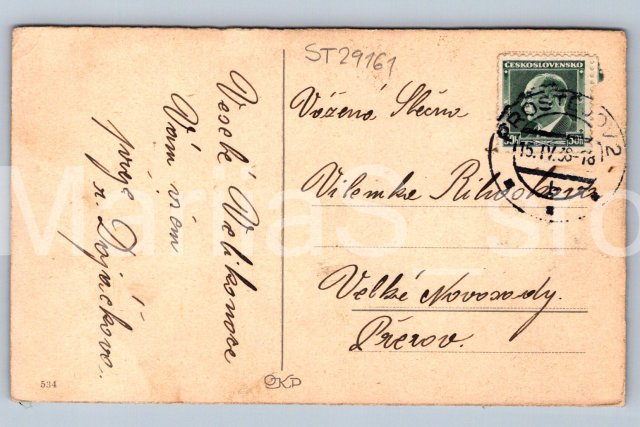 ST29161
Veselé Velikonoce
Vám všem
přeje
Vážená Slečna
Vilemka
Velké Novosady.
Přerov.
ČESKOSLOVENSKO
50h 50h
PROSTĚJOV 2
15.IV.38-18
534
OKP